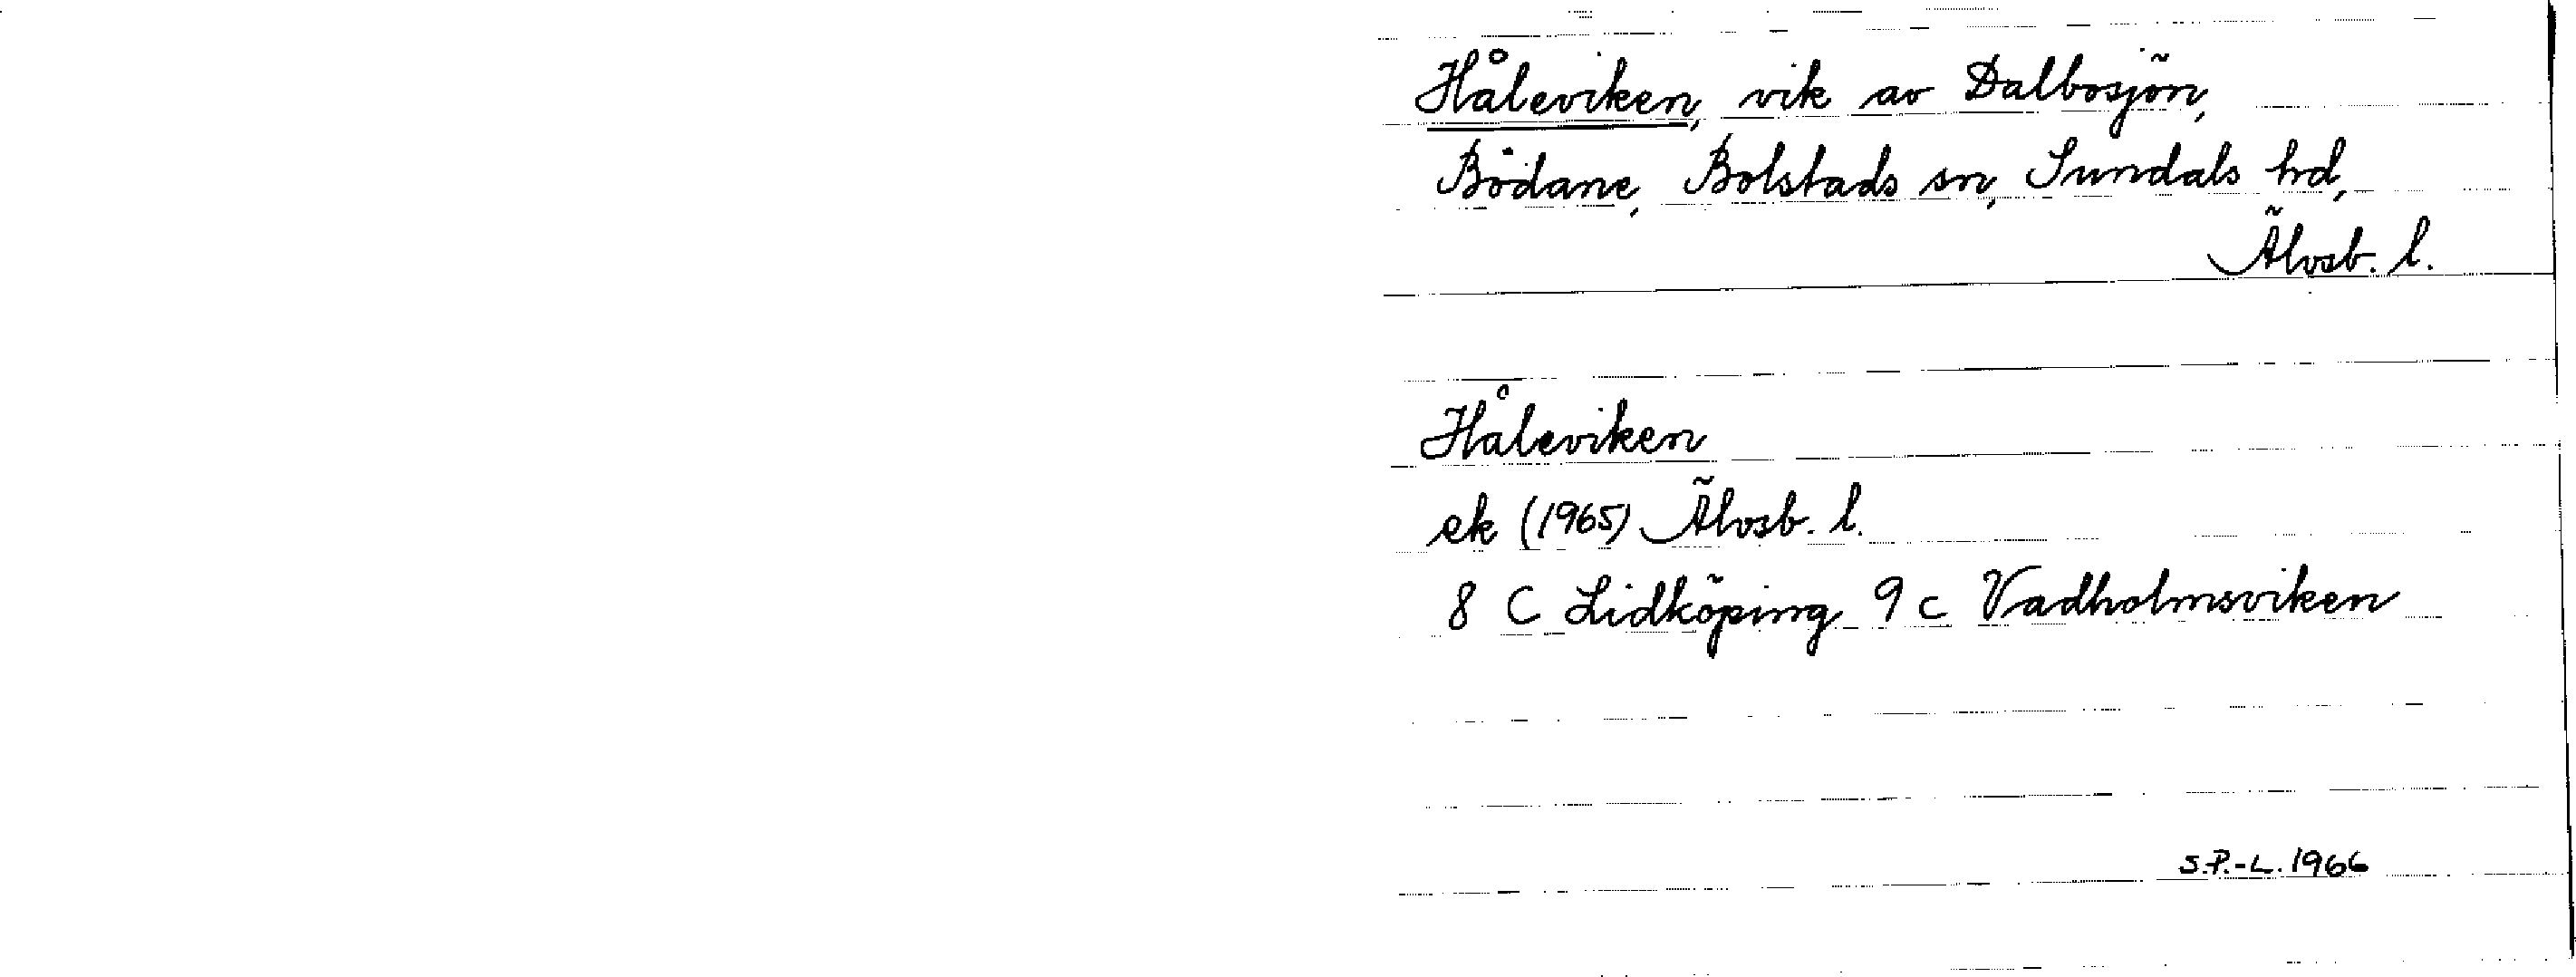 Håleviken, vik av Dalbosjön,
Bodane, Bolstads sn, Sundals hd,
Älvsb. l.
Håleviken
ek (1965) Älvsb. l.
8 C Lidköping 9 c Vadholmsviken
S.P.-L. 1966